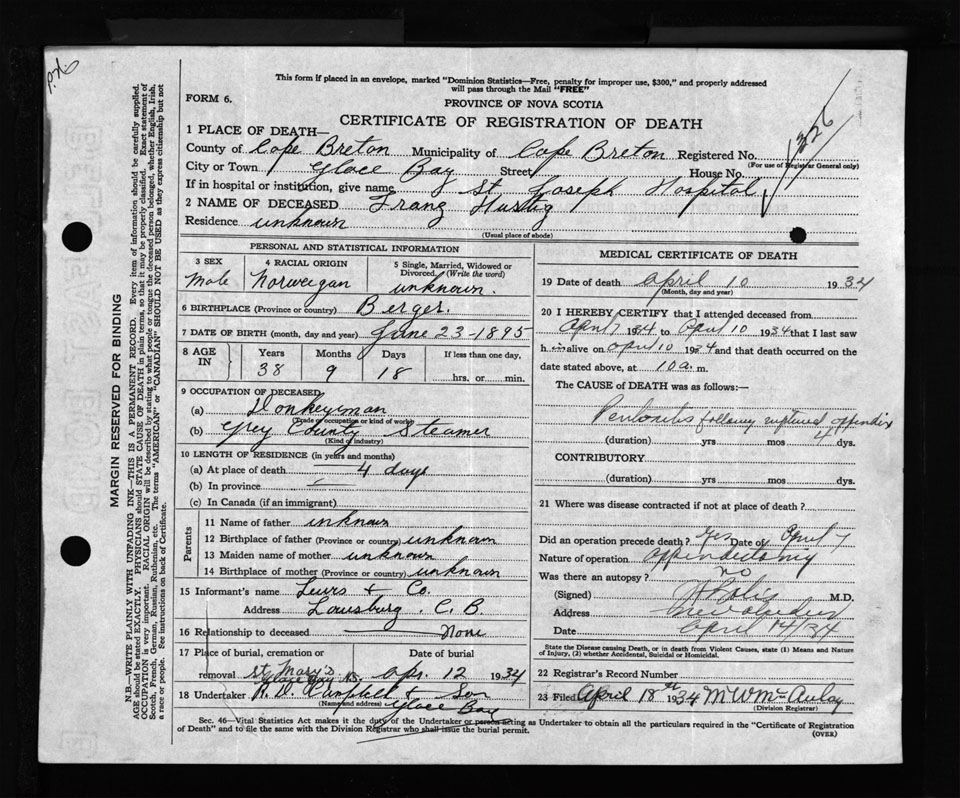 P.X.
This form if placed in an envelope, marked "Dominion Statistics—Free, penalty for improper use, $300," and properly addressed
will pass through the Mail "FREE"
FORM 6.
PROVINCE OF NOVA SCOTIA
CERTIFICATE OF REGISTRATION OF DEATH
1 PLACE OF DEATH—
County of Cape Breton Municipality of Cape Breton Registered No. 1326
(For use of Registrar General only)
City or Town Glace Bay Street House No.
If in hospital or institution, give name St. Joseph Hospital
2 NAME OF DECEASED Franz Hustig
Residence unknown
(Usual place of abode)
PERSONAL AND STATISTICAL INFORMATION
3 SEX Male
4 RACIAL ORIGIN Norweigan
5 Single, Married, Widowed or Divorced, (Write the word) unknown.
6 BIRTHPLACE (Province or country) Berger
7 DATE OF BIRTH (month, day and year) June 23-1895
8 AGE IN Years 38 Months 9 Days 18 If less than one day, hrs. or min.
9 OCCUPATION OF DECEASED
(a) Donkeyman
(Trade or occupation or kind of work)
(b) Grey County Steamer
(Kind of industry)
10 LENGTH OF RESIDENCE (in years and months)
(a) At place of death 4 days
(b) In province —
(c) In Canada (if an immigrant)
Parents
11 Name of father unknown
12 Birthplace of father (Province or country) unknown
13 Maiden name of mother unknown
14 Birthplace of mother (Province or country) unknown
15 Informant's name Lewis & Co.
Address Louisburg. C. B.
16 Relationship to deceased None
17 Place of burial, cremation or removal St. Mary's Glace Bay N.S.
Date of burial Apr. 12 1934
18 Undertaker & Son
(Name and address) Glace Bay
MEDICAL CERTIFICATE OF DEATH
19 Date of death April 10 1934
(Month, day and year)
20 I HEREBY CERTIFY that I attended deceased from
April 7 1934 to April 10 1934 that I last saw
h alive on April 10 1934 and that death occurred on the
date stated above, at 10 a. m.
The CAUSE OF DEATH was as follows:—
Peritonitis following ruptured appendix
(duration) yrs mos 4 dys.
CONTRIBUTORY
(duration) yrs mos dys.
21 Where was disease contracted if not at place of death?
Did an operation precede death? Yes Date of April 7
Nature of operation Appendectomy
Was there an autopsy? no
(Signed) M.D.
Address
Date April 14/34
State the Disease causing Death, or in death from Violent Causes, state (1) Means and Nature
of Injury, (2) whether Accidental, Suicidal or Homicidal.
22 Registrar's Record Number
23 Filed April 18th 1934 M W McAulay
(Division Registrar)
Sec. 46—Vital Statistics Act makes it the duty of the Undertaker or person acting as Undertaker to obtain all the particulars required in the "Certificate of Registration
of Death" and to file the same with the Division Registrar who shall issue the burial permit.
(OVER)
MARGIN RESERVED FOR BINDING
N.B.—WRITE PLAINLY WITH UNFADING INK—THIS IS A PERMANENT RECORD. Every item of information should be carefully supplied.
AGE should be stated EXACTLY. PHYSICIANS should STATE CAUSE OF DEATH in plain terms, so that it may be properly classified. Exact statement of
OCCUPATION is very important. RACIAL ORIGIN will be described by stating to what people or tongue the deceased person belonged, whether English, Irish,
Scotch, French, German, Russian, Ruthenian, etc. The terms "AMERICAN" or "CANADIAN" SHOULD NOT BE USED as they express citizenship but not
a race or people. See instructions on back of Certificate.